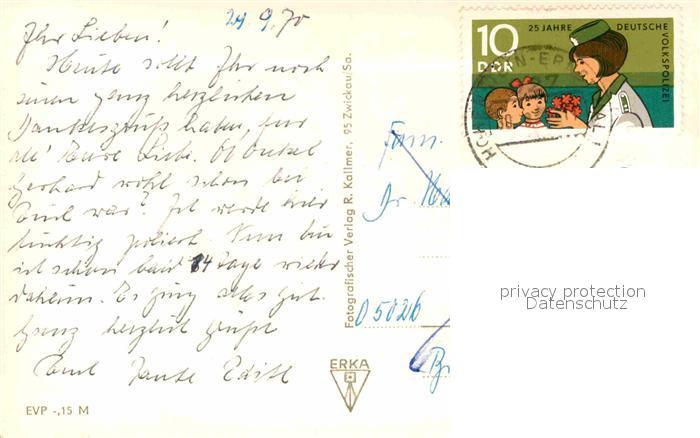 29.9.70
Ihr Lieben!
Heute sollt Ihr noch
einen ganz herzlichen
Dankesgruß haben, für
all' Eure Liebe. Ob Onkel
Gerhard wohl schon bei
Euch war? Ich werde hier
tüchtig
Nun bin
ich schon bald 14 Tage wieder
daheim. Es ging alles gut.
Ganz herzlich grüßt
Euch Tante Edith
EVP -,15 M
Fotografischer Verlag R. Kallmer, 95 Zwickau/Sa.
ERKA
10
DDR
25 JAHRE DEUTSCHE
VOLKSPOLIZEI
Fam.
Dr.
privacy protection
Datenschutz